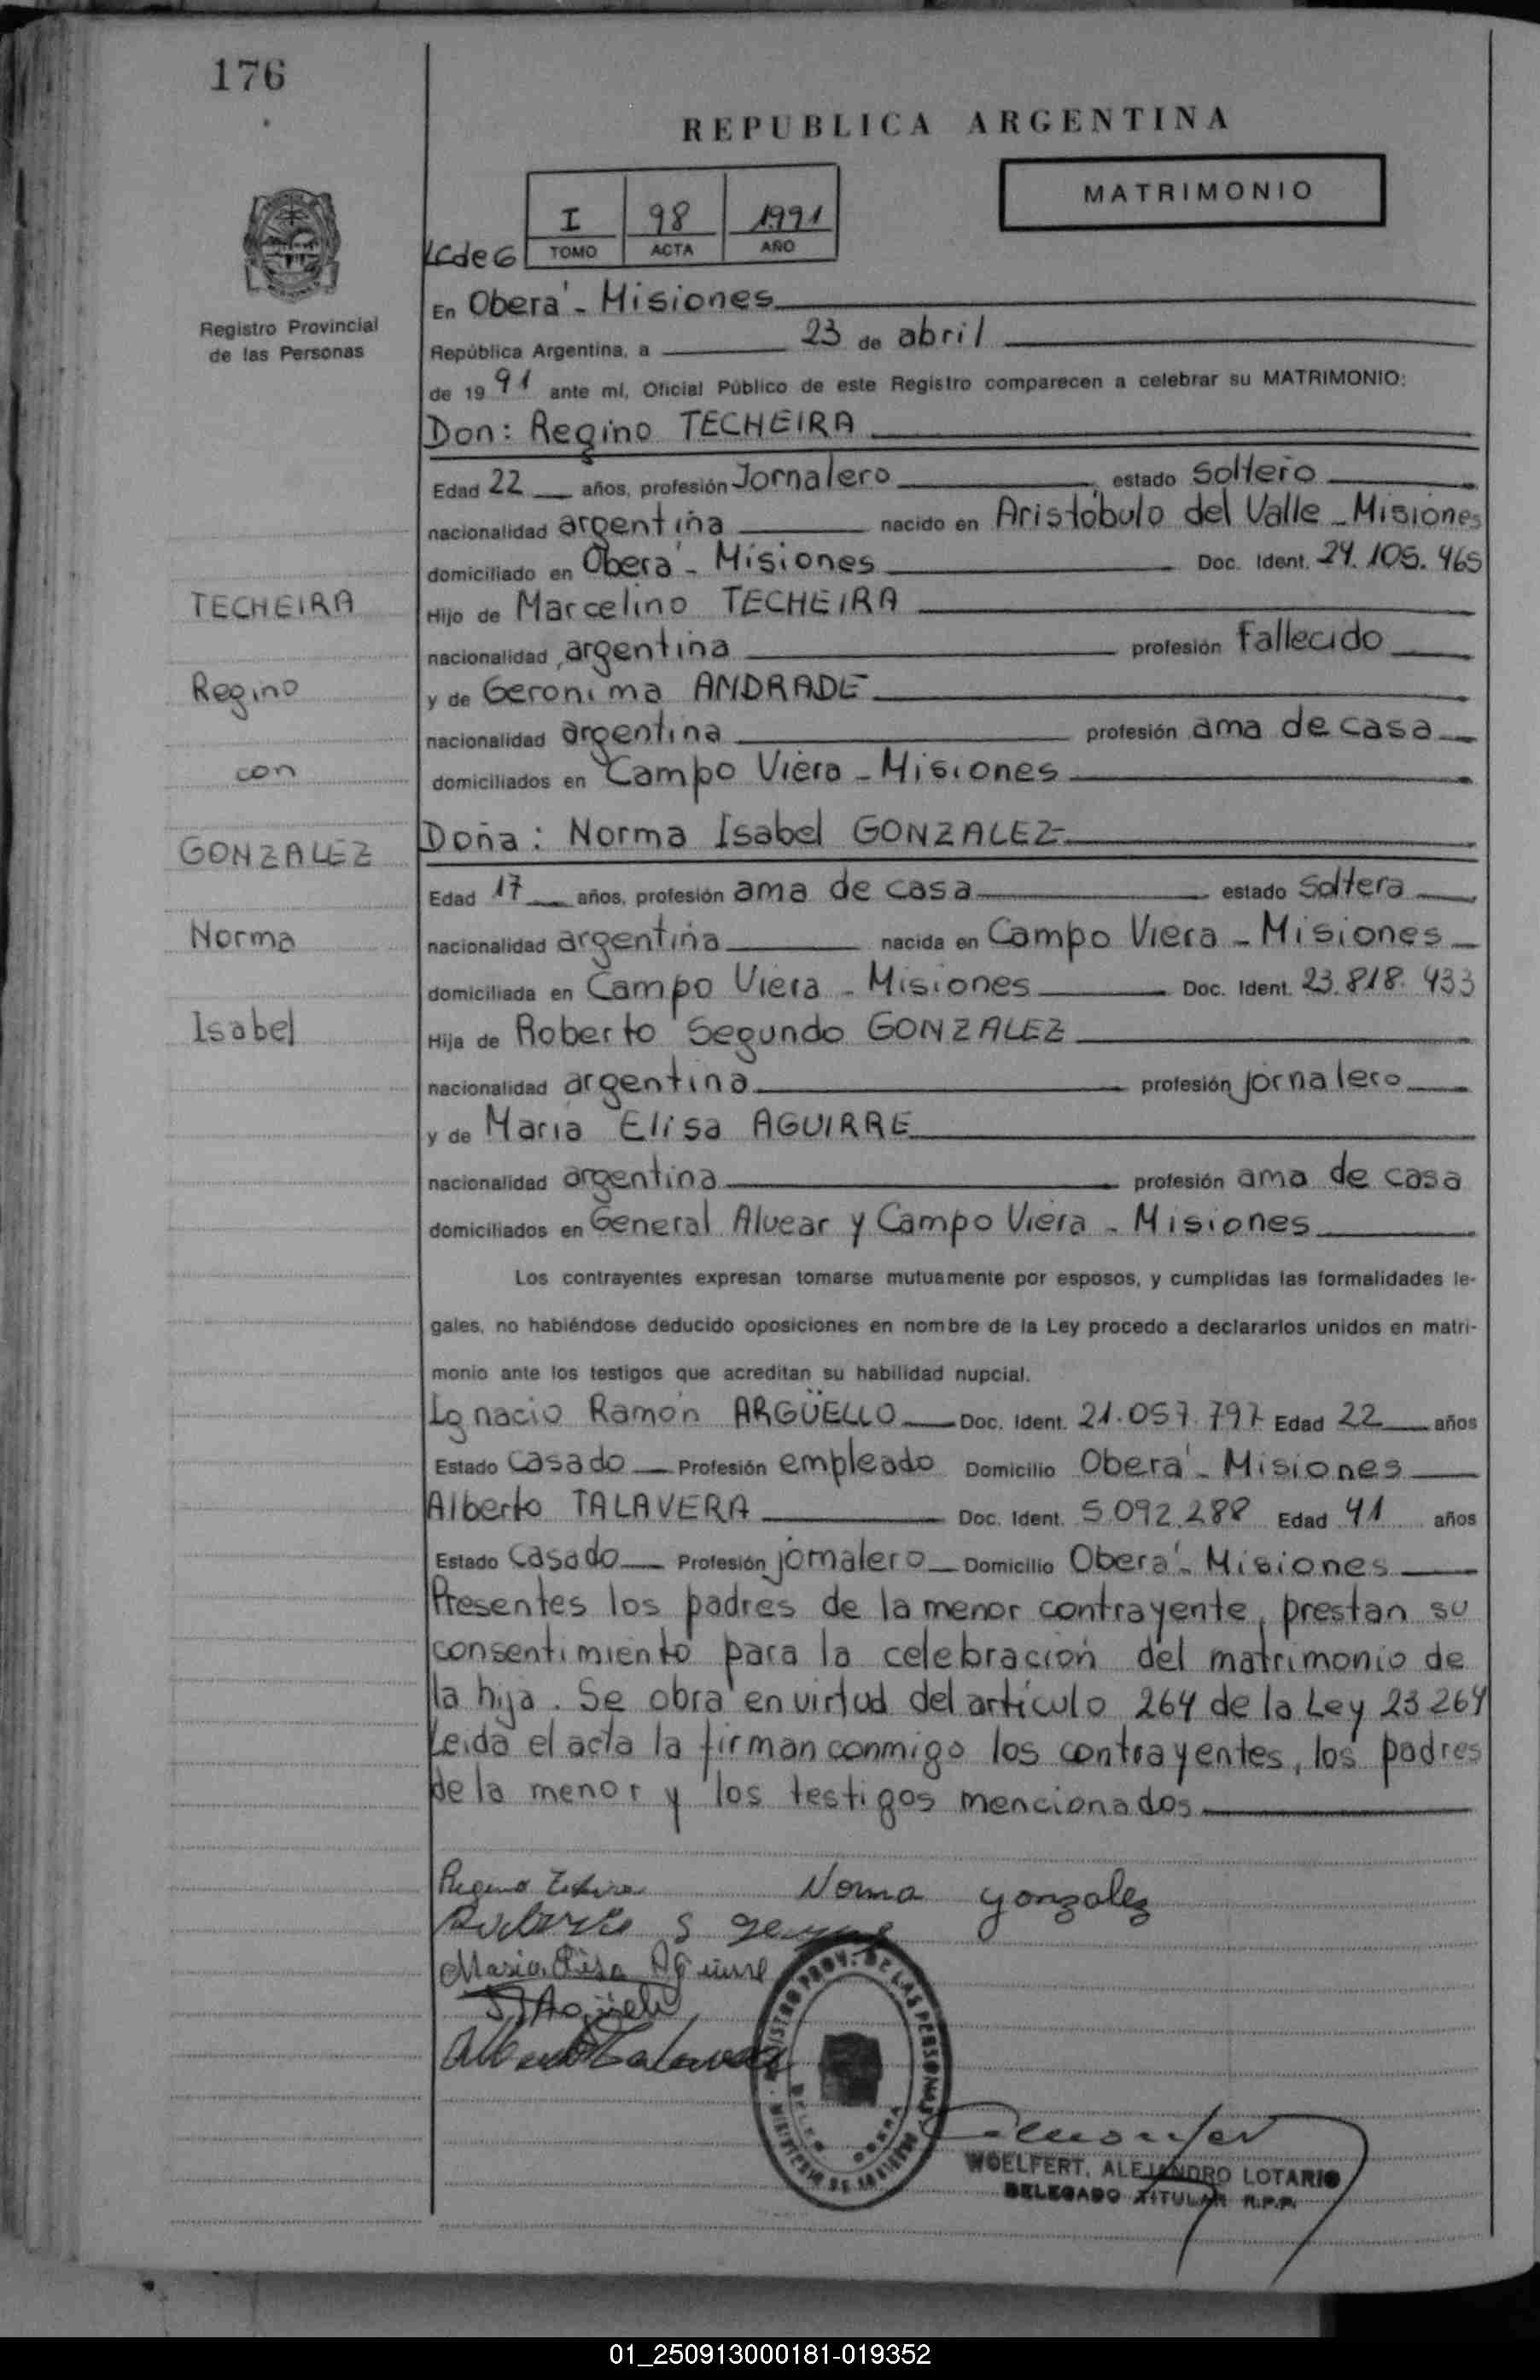 176
REPUBLICA ARGENTINA
MATRIMONIO
I 98 1991
TOMO ACTA AÑO
Registro Provincial
de las Personas
En Oberá - Misiones
República Argentina, a 23 de abril
de 1991 ante mí, Oficial Público de este Registro comparecen a celebrar su MATRIMONIO:
Don: Regino TECHEIRA
Edad 22 años, profesión Jornalero estado soltero
nacionalidad argentina nacido en Aristóbulo del Valle - Misiones
domiciliado en Oberá - Misiones Doc. Ident. 24.105.465
TECHEIRA
Hijo de Marcelino TECHEIRA
nacionalidad argentina profesión fallecido
Regino
y de Geronima ANDRADE
nacionalidad argentina profesión ama de casa
con
domiciliados en Campo Viera - Misiones
Doña: Norma Isabel GONZALEZ
GONZALEZ
Edad 17 años, profesión ama de casa estado soltera
Norma
nacionalidad argentina nacida en Campo Viera - Misiones
domiciliada en Campo Viera - Misiones Doc. Ident. 23.818.433
Isabel
Hija de Roberto Segundo GONZALEZ
nacionalidad argentina profesión jornalero
y de María Elisa AGUIRRE
nacionalidad argentina profesión ama de casa
domiciliados en General Alvear y Campo Viera - Misiones
Los contrayentes expresan tomarse mutuamente por esposos, y cumplidas las formalidades le-
gales, no habiéndose deducido oposiciones en nombre de la Ley procedo a declararlos unidos en matri-
monio ante los testigos que acreditan su habilidad nupcial.
Ignacio Ramón ARGÜELLO Doc. Ident. 21.057.797 Edad 22 años
Estado casado Profesión empleado Domicilio Oberá - Misiones
Alberto TALAVERA Doc. Ident. 5.092.288 Edad 41 años
Estado casado Profesión jornalero Domicilio Oberá - Misiones
Presentes los padres de la menor contrayente, prestan su
consentimiento para la celebración del matrimonio de
la hija. Se obra en virtud del artículo 264 de la Ley 23264
Leida el acta la firman conmigo los contrayentes, los padres
de la menor y los testigos mencionados
Norma Gonzalez
Maria Elisa Aguirre
Alberto Talavera
REGISTRO PROV. DE LAS PERSONAS
WOELFERT, ALEJANDRO LOTARIO
DELEGADO TITULAR R.P.P.
01_250913000181-019352